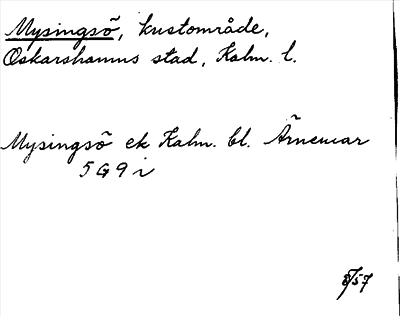 Mysingsö, kustområde,
Oskarshamns stad, Kalm. l.
Mysingsö ek Kalm. bl. Ärnemar
5 G 9 i
8/57